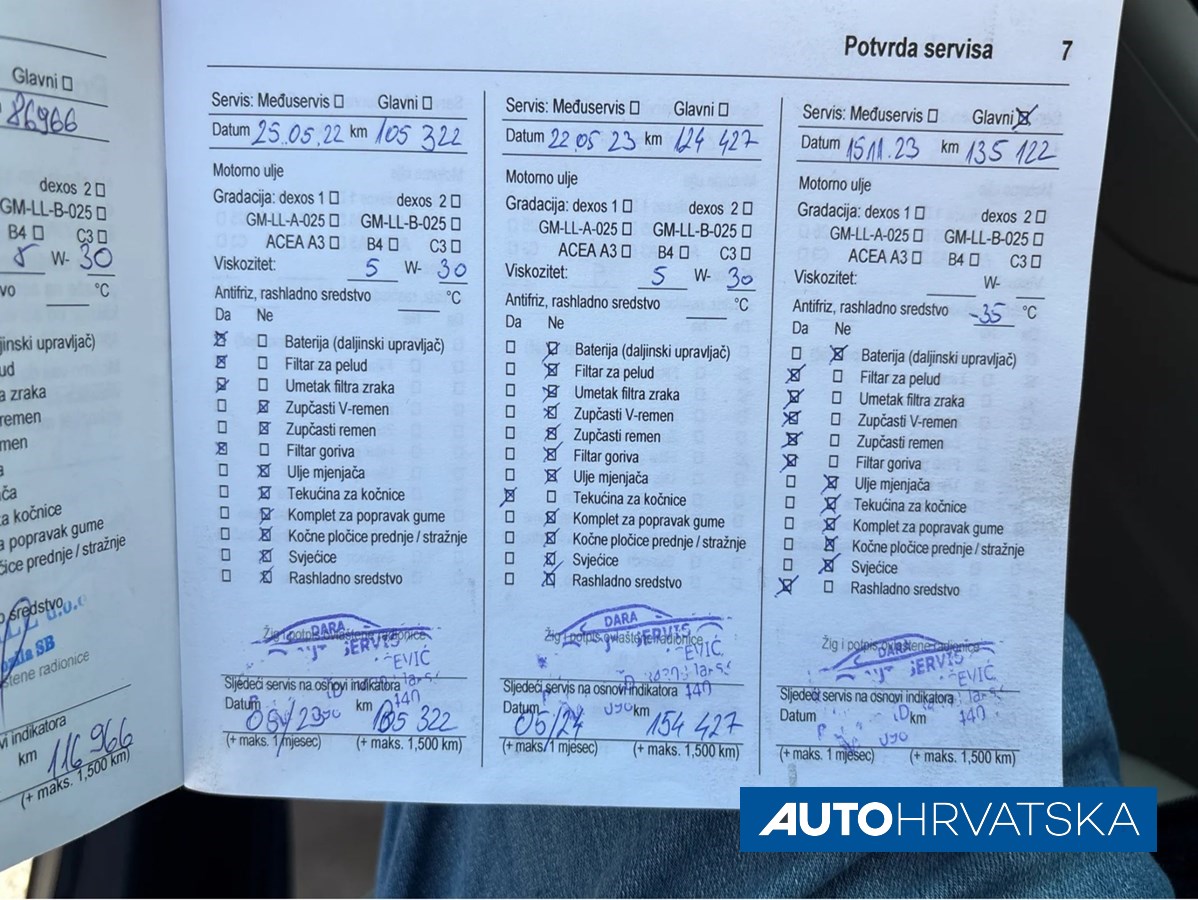 Glavni
86966
dexos 2
GM-LL-B-025
B4 C3
5 W- 30
°C
a zraka
a kočnice
a popravak gume
prednje / stražnje
sredstvo
SB
radionice
indikatora
km 116 966
(+ maks. 1,500 km)
Potvrda servisa 7
Servis: Međuservis Glavni
Datum 25.05.22 km 105 322
Motorno ulje
Gradacija: dexos 1 dexos 2
GM-LL-A-025 GM-LL-B-025
ACEA A3 B4 C3
Viskozitet: 5 W- 30
Antifriz, rashladno sredstvo °C
Da Ne
Baterija (daljinski upravljač)
Filtar za pelud
Umetak filtra zraka
Zupčasti V-remen
Zupčasti remen
Filtar goriva
Ulje mjenjača
Tekućina za kočnice
Komplet za popravak gume
Kočne pločice prednje / stražnje
Svjećice
Rashladno sredstvo
Žig i potpis ovlaštene radionice
DARA
SERVIS
Sljedeći servis na osnovi indikatora
Datum 05/23 km 322
(+ maks. 1 mjesec) (+ maks. 1,500 km)
Servis: Međuservis Glavni
Datum 22.05 23 km 124 427
Motorno ulje
Gradacija: dexos 1 dexos 2
GM-LL-A-025 GM-LL-B-025
ACEA A3 B4 C3
Viskozitet: 5 W- 30
Antifriz, rashladno sredstvo °C
Da Ne
Baterija (daljinski upravljač)
Filtar za pelud
Umetak filtra zraka
Zupčasti V-remen
Zupčasti remen
Filtar goriva
Ulje mjenjača
Tekućina za kočnice
Komplet za popravak gume
Kočne pločice prednje / stražnje
Svjećice
Rashladno sredstvo
DARA
Žig i potpis ovlaštene radionice
SERVIS
Sljedeći servis na osnovi indikatora
Datum 05/24 km 154 427
(+ maks. 1 mjesec) (+ maks. 1,500 km)
Servis: Međuservis Glavni
Datum 15.11.23 km 135 122
Motorno ulje
Gradacija: dexos 1 dexos 2
GM-LL-A-025 GM-LL-B-025
ACEA A3 B4 C3
Viskozitet: W-
Antifriz, rashladno sredstvo -35 °C
Da Ne
Baterija (daljinski upravljač)
Filtar za pelud
Umetak filtra zraka
Zupčasti V-remen
Zupčasti remen
Filtar goriva
Ulje mjenjača
Tekućina za kočnice
Komplet za popravak gume
Kočne pločice prednje / stražnje
Svjećice
Rashladno sredstvo
Žig i potpis ovlaštene radionice
DARA
SERVIS
Sljedeći servis na osnovi indikatora
Datum km
(+ maks. 1 mjesec) (+ maks. 1,500 km)
AUTOHRVATSKA